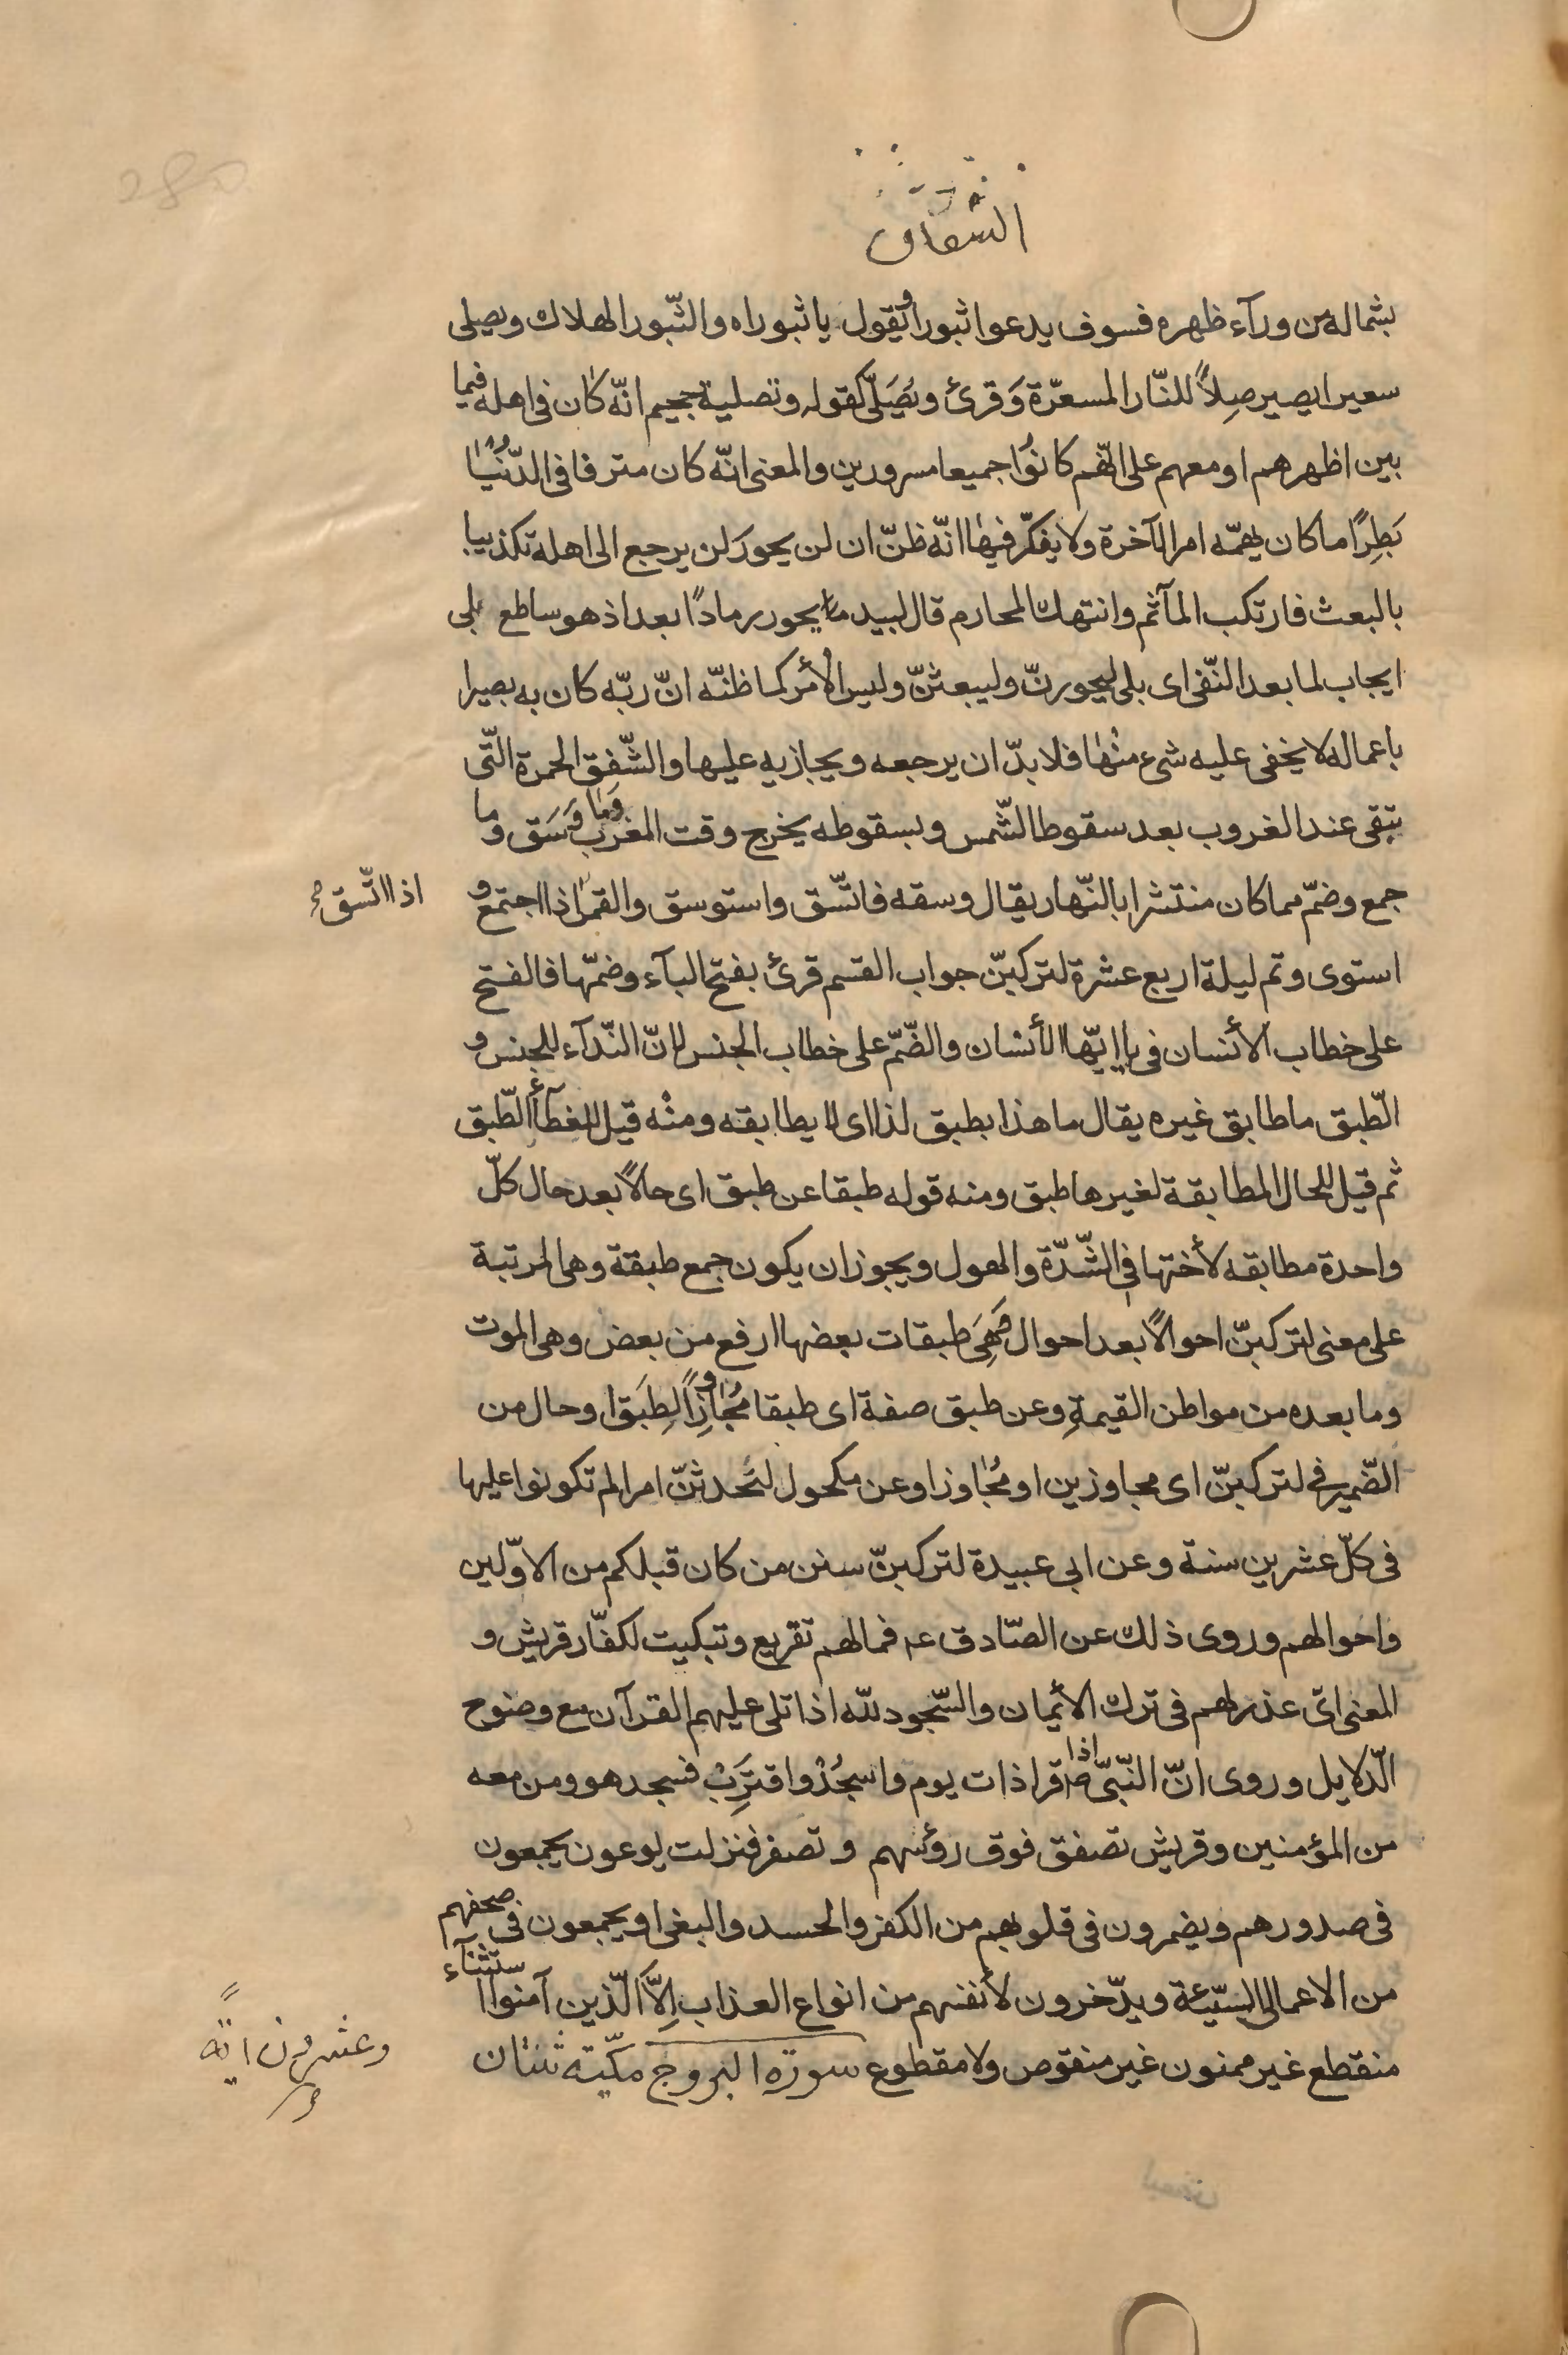 الشقاق
بشماله من ورآء ظهره فسوف يدعوا ثبورا ويقول يا ثبوراه والثّبور الهلاك ويصلى
سعيرا يصير صِلاً للنّار المسعّرة وَقرئ ويُصَلّى كقوله وتصلية جحيم انّه كان فى اهله فيما
بين اظهرهم او معهم على انّهم كانوُا جميعا مسرورين والمعنى انّه كان مترفا فى الدّنُيٰا
بَطِرًا ما كان يهمّه امر الآخرة ولا يفكّر فيهٰا انّه ظنّ ان لن يحورَ لن يرجع الى اهله تكذيبا
بالبعث فارتكب المآثم وانتهك المحارم قال لبيد يحور رمادًا بعد اذ هو ساطع بلى
ايجاب لما بعد النّفى اى بلى ليحورنّ وليبعثنّ وليس الأمر كما ظنّه انّ ربّه كان به بصيرا
باعماله لا يخفى عليه شىء منْهٰا فلا بدّ ان يرجعه ويجازيه عليها والشّفق الحمرة الّتى
تبقى عند الغروب بعد سقوط الشّمس وبسقوطه يخرج وقت المغرب وَمٰا وَسَق وما
جمع وضمّ مما كان منتشرا بالنّهار يقال وسقه فاتّسق واستوسق والقمر اذا اجتمع و
اذا اتّسق
استوى وتم ليلة اربع عشرة لتركبنّ جواب القسم قرئ بفتح البآء وضمّها فالفتح
على خطاب الأنسان فى يا ايّها الأنسان والضّمّ على خطاب الجنس لانّ النّدآء للجنس و
الطّبق ما طابق غيره يقال ما هذا بطبق لذا اى لا يطابقه ومنْه قيل للغطآء الطّبق
ثم قيل للحال المطابقة لغيرها طبق ومنه قوله طبقا عن طبق اى حالًا بعد حال كلّ
واحدة مطابقه لأختها فى الشّدّة والهول ويجوز ان يكون جمع طبقة وهى المرتبة
على معنى لتركبنّ احوالًا بعد احوال هِىَ طبقات بعضها ارفع من بعض وهى الموت
وما بعده من مواطن القيمةِ وعن طبق صفة اى طبقا مُجٰاوزًا لِطَبَق او حال من
الضّمير فى لتركبنّ اى مجاوزين او مُجٰاوزا وعن مكحول لتَحدثنّ امرا لم تكونوا عليها
فى كلّ عشرين سنة وعن ابى عبيدة لتركبنّ سنن من كان قبلكم من الاوّلين
واحوالهم وروى ذلك عن الصّادق عه فمالهم تقريع وتبكيت لكفّار قريش و
المعنى اىّ عذر لهم فى ترك الأيمان والسّجود للّه اذا تلى عليهم القرآن مع وضوح
الّدلايل وروى انّ النّبىّ ص اذا قرا ذات يوم واسجُدْ واقترَبْ فسجد هو ومن معه
من المؤمنين وقريش تصفق فوق رؤسهم و تصفر فنزلت يوعون يجمعون
فى صدورهم ويضمرون فى قلوبهم من الكفر والحسد والبغى او يجمعون فى صحفهم
من الاعمال السّيّئة ويدّخرون لأنفسهم من انواع العذاب اِلَّا الّذين آمنوا استثنآء
منقطع غير ممنون غير منقوص ولا مقطوع سورة البروج مكّيّة ثنتان
وعشرون اية